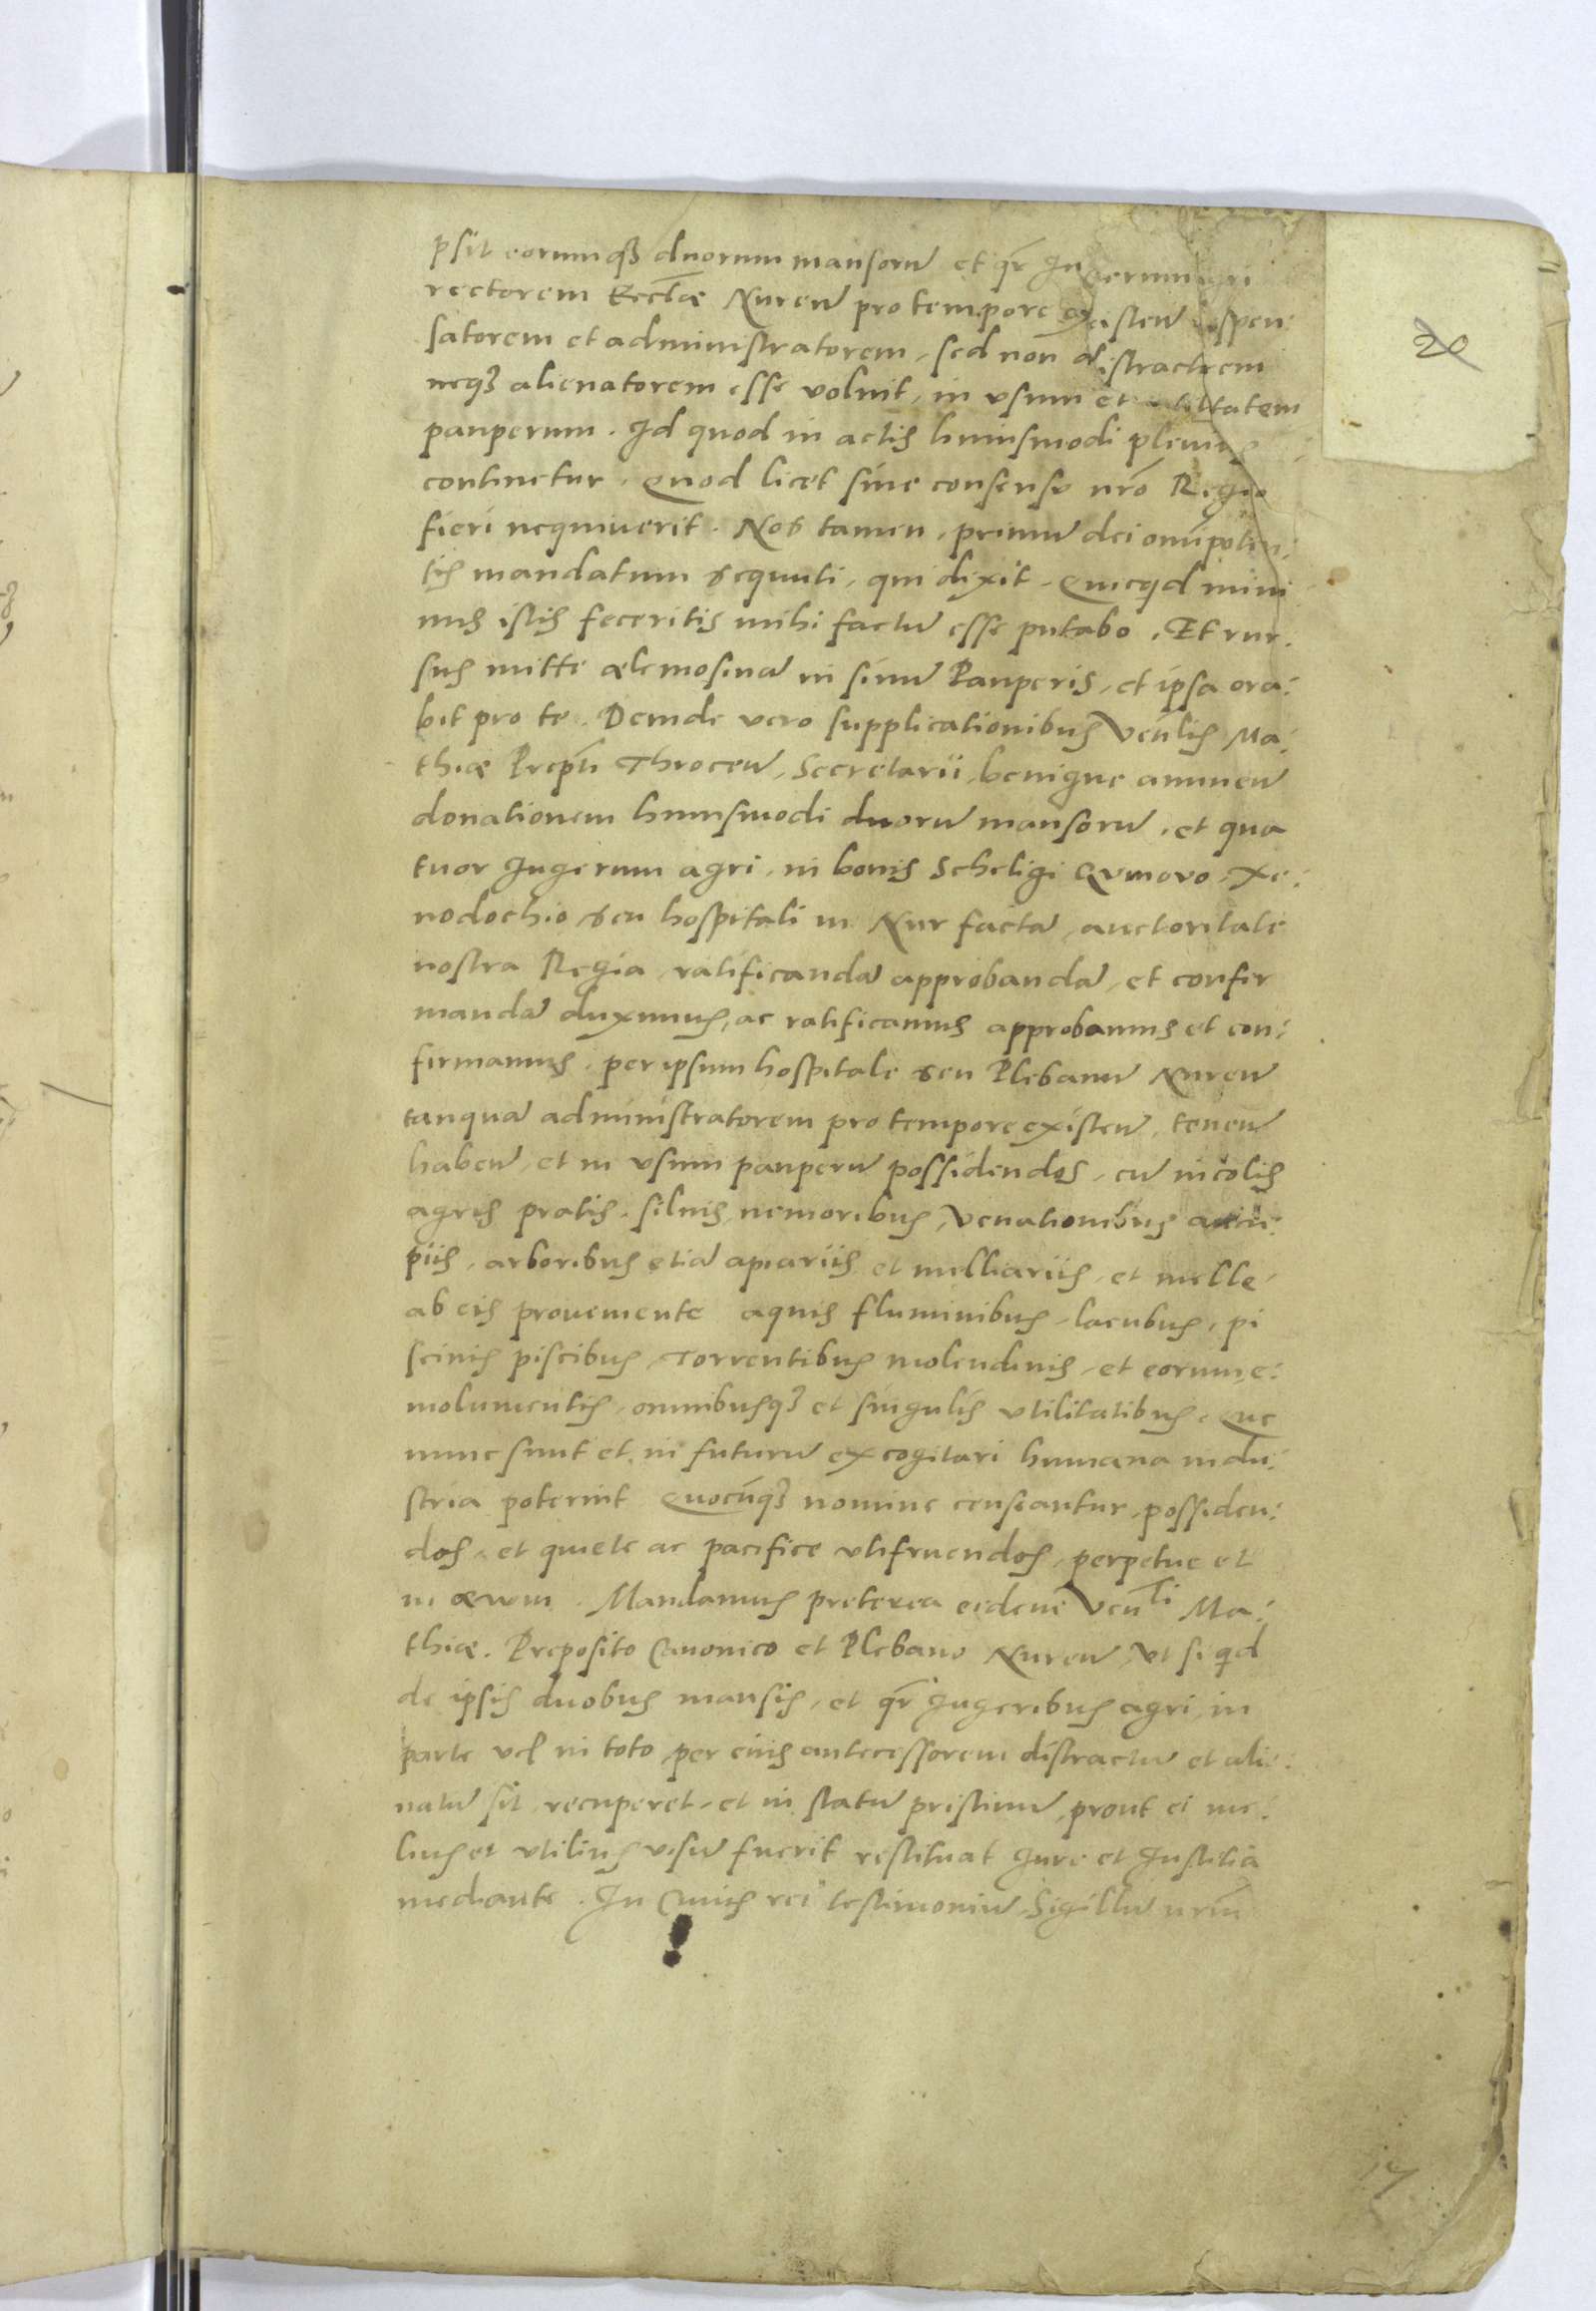 20
psit eorumqȝ duorum mansorũ et qr̃ Jugerum agri
rectorem Eccl̃æ Nureñ pro tempore existeñ dispen:
satorem et administratorem, sed non distractorem
neqȝ alienatorem esse voluit, in vsum et vtilitatem
pauperum. Id quod in actis huiusmodi plenius
continetur. Quod licet sine consensu nr̃o Regio
fieri nequiverit. Nos tamen, primũ dei omnipoten:
tis mandatum sequuti, qui dixit. Quicqͥd mini
mis istis feceritis mihi factũ esse putabo. Et rur:
sus mitte ælemosinã in sinũ Pauperis, et ipsa ora:
bit pro te. Deinde vero supplicationibus Ven̄lis Ma:
thiæ Prep̃ti Throceñ, Secretarii, benigne annueñ
donationem huiusmodi duorũ mansorũ, et qua
tuor Jugerum agri, in bonis Scheligi Qvmovo, Xe:
nodochio seu hospitali in Nur factã, auctoritate
nostra Regia, ratificandã approbandã, et confir
mandã duximus, ac ratificamus approbamus et con:
firmamus, per ipsum hospitale seu Plebanũ Nureñ
tanquã administratorem pro tempore existeñ, teneñ
habeñ, et in vsum pauperũ possidendos, cũ incolis
agris pratis, siluis, nemoribus, Venationibus aucu:
piis, arboribus etiã apiariis et melliariis, et melle
ab eis proueniente aquis fluminibus, lacubus, pi
scinis piscibus, Torrentibus molendinis, et eorum e:
molumentis, omnibusqȝ et singulis vtilitatibus, Que
nunc sunt et in futurũ excogitari humana indu:
stria poterint Quocũqȝ nomine censeantur, possiden:
dos, et quiete ac pacifice vtifruendos, perpetue et
in æwum. Mandamus preterea eidem Ven^li Ma:
thiæ. Preposito Canonico et Plebano Nureñ, Vt si qͥd
de ipsis duobus mansis, et qr̃ Jugeribus agri, in
parte vel in toto, per eius antecessorem distractũ et alie:
natũ sit, recuperet, et in statũ pristinũ, prout ei me:
lius et vtilius visũ fuerit restituat Jure et Justitia
mediante. In Cuius rei testimoniũ, Sigillũ nr̃m
17